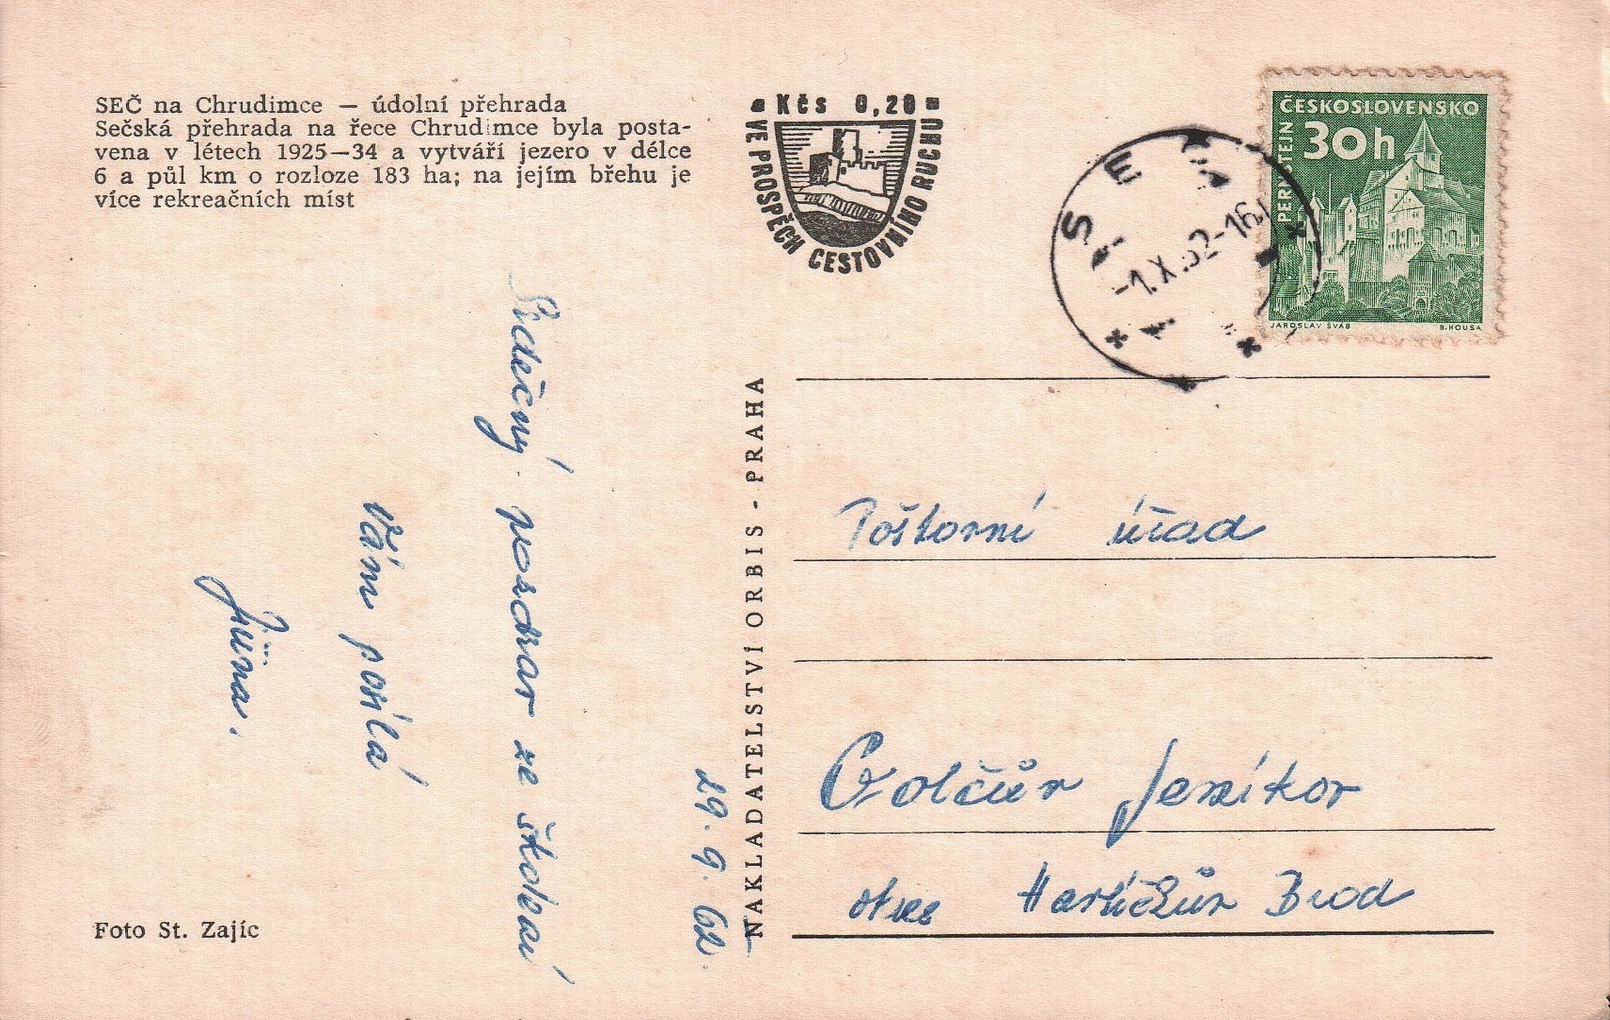 SEČ na Chrudimce — údolní přehrada
Sečská přehrada na řece Chrudimce byla posta-
vena v létech 1925—34 a vytváří jezero v délce
6 a půl km o rozloze 183 ha; na jejím břehu je
více rekreačních míst
Kčs 0,20
VE PROSPĚCH CESTOVNÍHO RUCHU
SEČ
-1.X.62-16
ČESKOSLOVENSKO
30h
PERNŠTEJN
JAROSLAV ŠVÁB
B. HOUSA
29. 9. 62.
Srdečný pozdrav ze školení
Vám posílá
Jiřina.
NAKLADATELSTVÍ ORBIS - PRAHA
Poštovní úřad
Golčův Jeníkov
okres Havlíčkův Brod
Foto St. Zajíc